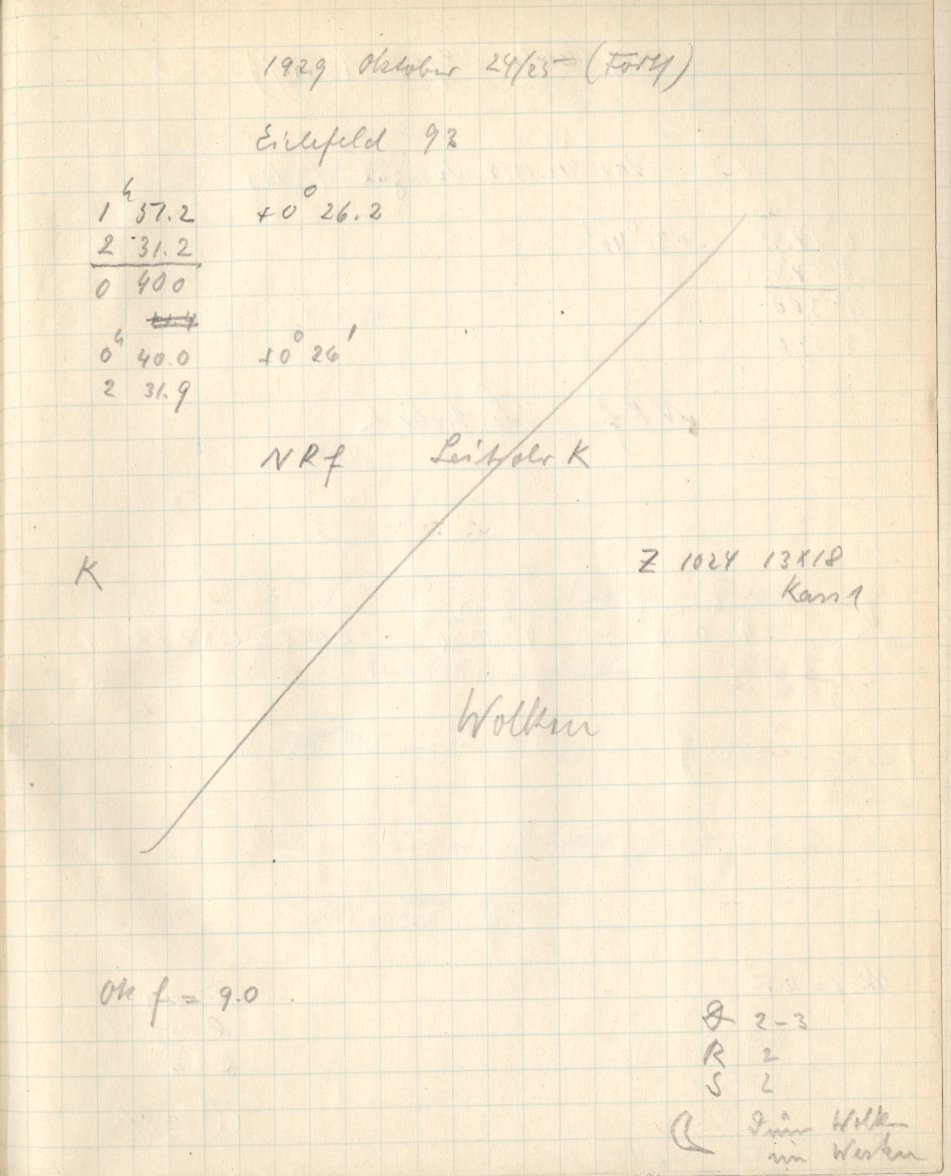 1929 Oktober 24/25 (Forts)
Eichfeld 93
1h 51.2 +0° 26.2
2 31.2
0 40 0
0h 40.0 +0° 26'
2 31.9
NRf Leitrohr K
K
Z 1024 13x18
Kass 1
Wolken
Ok f = 9.0
2-3
R 2
S 2
Wolken
im Westen